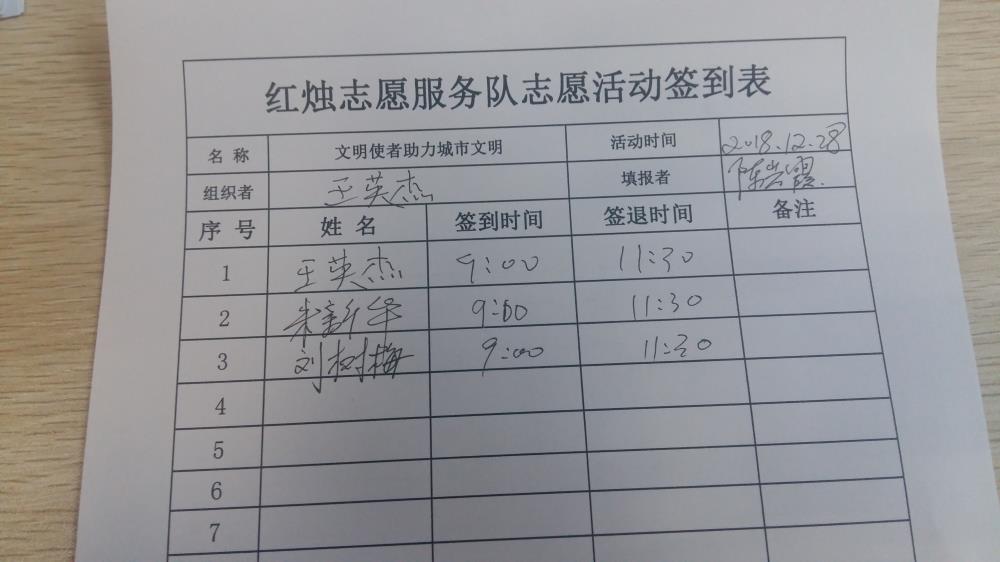 红烛志愿服务队志愿活动签到表
名 称 文明使者助力城市文明 活动时间 2018.12.28
组织者 王英杰 填报者 陈 霞
序 号 姓 名 签到时间 签退时间 备注
1 王英杰 9:00 11:30
2 朱新华 9:00 11:30
3 刘树梅 9:00 11:30
4
5
6
7